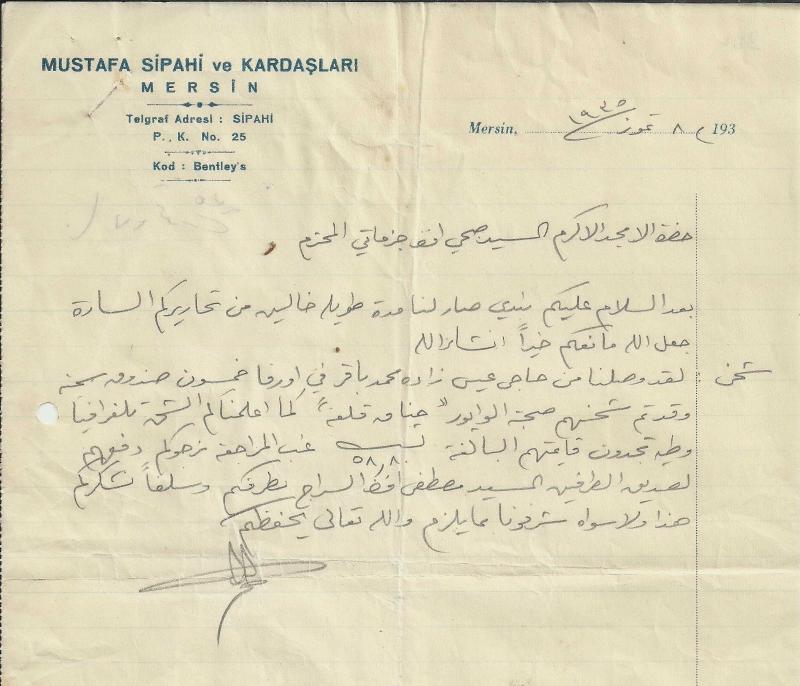 MUSTAFA SİPAHİ ve KARDAŞLARI
MERSİN
Telgraf Adresi : SİPAHİ
P. K. No. 25
Kod : Bentley's
Mersin, ٨ تموز ١٩٣٥ 193
حضرة الامجد الاكرم السيد صبحي افندي جزماتي المحترم
بعد السلام عليكم نبدي صار لنا مدة طويلة خاليين من تحاريركم السارة
جعل الله مانعكم خيراً انشاءالله
شحن : لقد وصلنا من حاجي عيسى زاده محمد باقر في اورفا خمسون صندوق
وقد تم شحنهم صحبة الوابور "جناق قلعة" كما اعلمناكم تلغرافياً
وطيه تجدون قايمتهم البالغة ٥٨٫٨ غب المراجعة نرجوكم دفعهم
لصديق الطرفين السيد مصطفى السراج بطرفكم وسلفاً نشكركم
هذا ولا سواه شرفونا بما يلزم والله تعالى يحفظكم